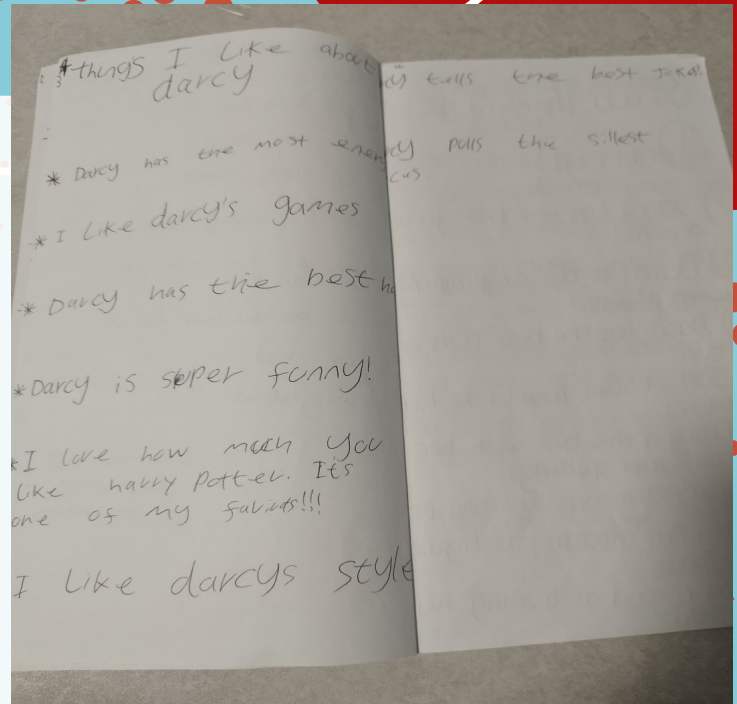 things I like about
darcy
* Darcy has the most energ
* I like darcy's games
* Darcy has the best
* Darcy is super funny!
* I love how much you
like harry Potter. It's
one of my favirats!!!
I like darcys style
cy tells the best Jokes!
cy pulls the sillest